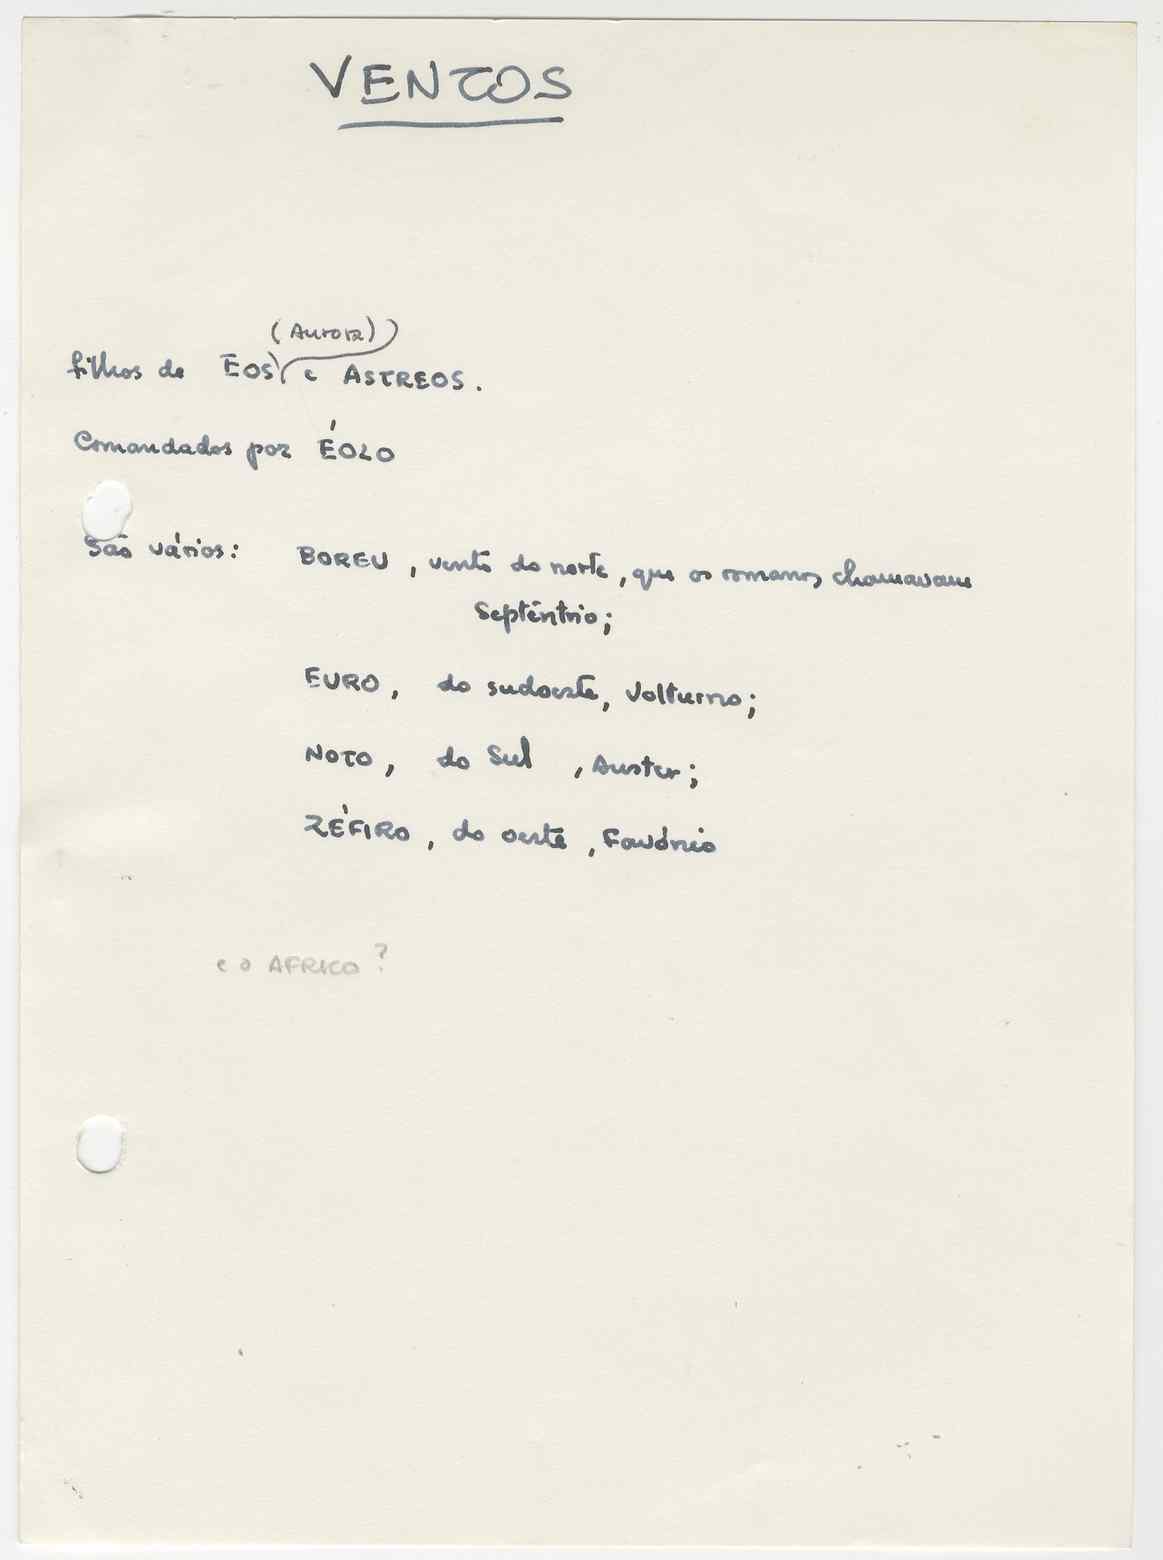 VENTOS
(Aurora)
filhos de EOS e ASTREOS.
Comandados por ÉOLO
São vários: BOREU, vento do norte, que os romanos chamavam
Septêntrio;
EURO, do sudoeste, Volturno;
NOTO, do Sul, Auster;
ZÉFIRO, do oeste, Favónio
e o AFRICO?